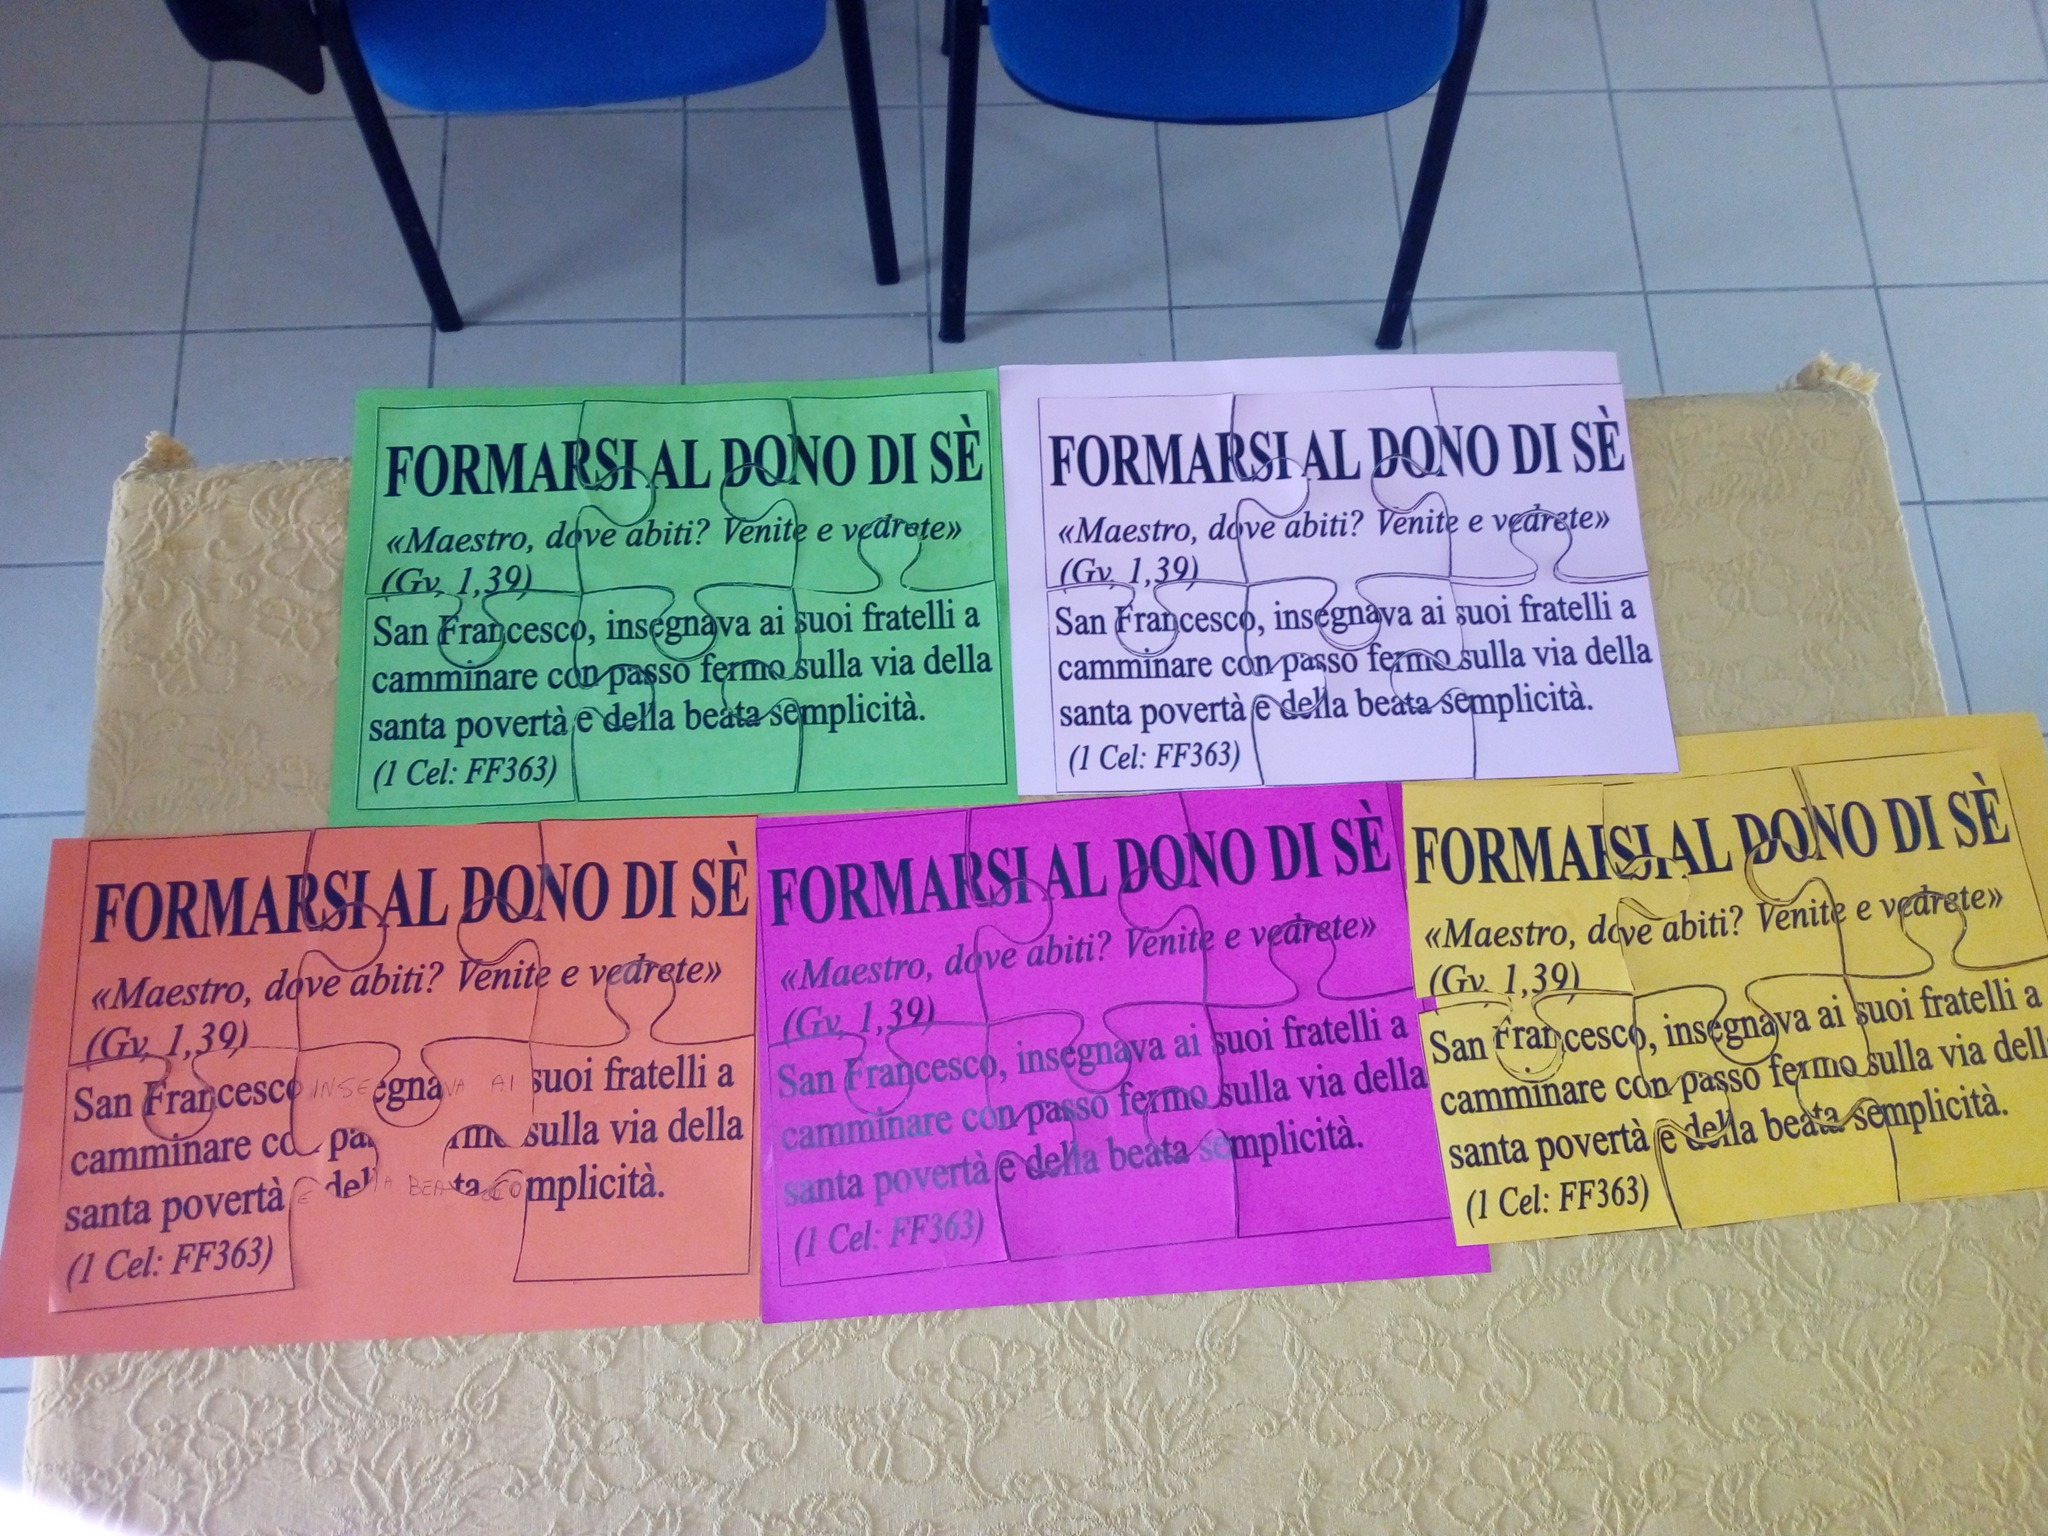 FORMARSI AL DONO DI SÈ
«Maestro, dove abiti? Venite e vedrete»
(Gv, 1,39)
San Francesco, insegnava ai suoi fratelli a
camminare con passo fermo sulla via della
santa povertà e della beata semplicità.
(1 Cel: FF363)
FORMARSI AL DONO DI SÈ
«Maestro, dove abiti? Venite e vedrete»
(Gv, 1,39)
San Francesco, insegnava ai suoi fratelli a
camminare con passo fermo sulla via della
santa povertà e della beata semplicità.
(1 Cel: FF363)
FORMARSI AL DONO DI SÈ
«Maestro, dove abiti? Venite e vedrete»
(Gv, 1,39)
San Francesco INSEgnaVA AI suoi fratelli a
camminare sulla via della
santa povertà E delLA BEAta semplicità.
(1 Cel: FF363)
FORMARSI AL DONO DI SÈ
«Maestro, dove abiti? Venite e vedrete»
(Gv, 1,39)
San Francesco, insegnava ai suoi fratelli a
camminare con passo fermo sulla via della
santa povertà e della beata semplicità.
(1 Cel: FF363)
FORMARSI AL DONO DI SÈ
«Maestro, dove abiti? Venite e vedrete»
(Gv, 1,39)
San Francesco, insegnava ai suoi fratelli a
camminare con passo fermo sulla via dell
santa povertà e della beata semplicità.
(1 Cel: FF363)